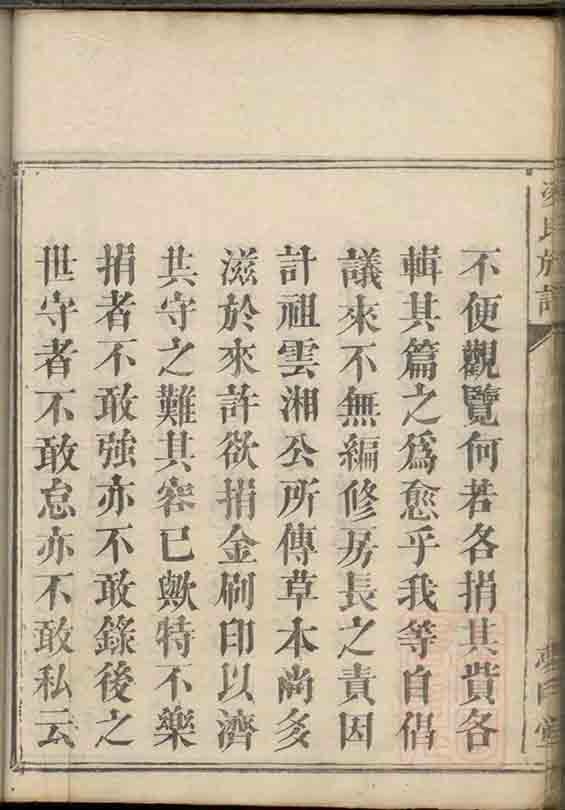 不便觀覽何若各捐其貲各
輯其篇之爲愈乎我等自倡
議來不無編修房長之責因
計祖雲湘公所傳草本尚多
滋於來許欲捐金刷印以濟
共守之難其容已歟特不樂
捐者不敢強亦不敢錄後之
世守者不敢怠亦不敢私云
氏族譜
堂